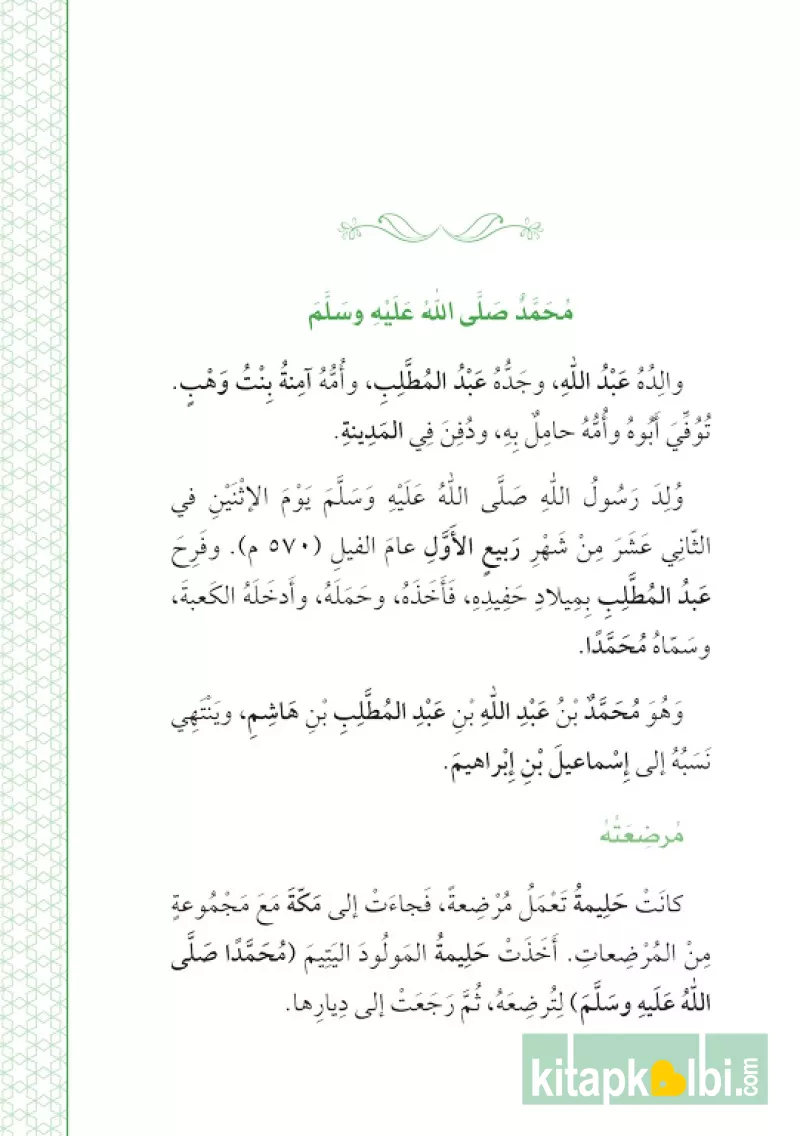 مُحَمَّدٌ صَلَّى اللهُ عَلَيْهِ وسَلَّمَ
والِدُهُ عَبْدُ اللهِ، وجَدُّهُ عَبْدُ المُطَّلِبِ، وأُمُّهُ آمِنةُ بِنْتُ وَهْبٍ.
تُوُفِّيَ أَبُوهُ وأُمُّهُ حامِلٌ بِهِ، ودُفِنَ فِي المَدِينةِ.
وُلِدَ رَسُولُ اللهِ صَلَّى اللهُ عَلَيْهِ وَسَلَّمَ يَوْمَ الإثْنَيْنِ في
الثّانِي عَشَرَ مِنْ شَهْرِ رَبِيعٍ الأَوَّلِ عامَ الفيلِ (٥٧٠ م). وفَرِحَ
عَبدُ المُطَّلِبِ بِمِيلادِ حَفِيدِهِ، فَأَخَذَهُ، وحَمَلَهُ، وأَدخَلَهُ الكَعبةَ،
وسَمّاهُ مُحَمَّدًا.
وَهُوَ مُحَمَّدٌ بْنُ عَبْدِ اللهِ بْنِ عَبْدِ المُطَّلِبِ بْنِ هَاشِمٍ، ويَنْتَهِي
نَسَبُهُ إلى إِسْماعيلَ بْنِ إِبْراهيمَ.
مُرضِعَتُهُ
كانَتْ حَلِيمةُ تَعْمَلُ مُرْضِعةً، فَجاءَتْ إلى مَكّةَ مَعَ مَجْمُوعةٍ
مِنْ المُرْضِعاتِ. أَخَذَتْ حَلِيمةُ المَولُودَ اليَتِيمَ (مُحَمَّدًا صَلَّى
اللهُ عَلَيهِ وسَلَّمَ) لِتُرضِعَهُ، ثُمَّ رَجَعَتْ إلى دِيارِها.
kitapkalbi.com